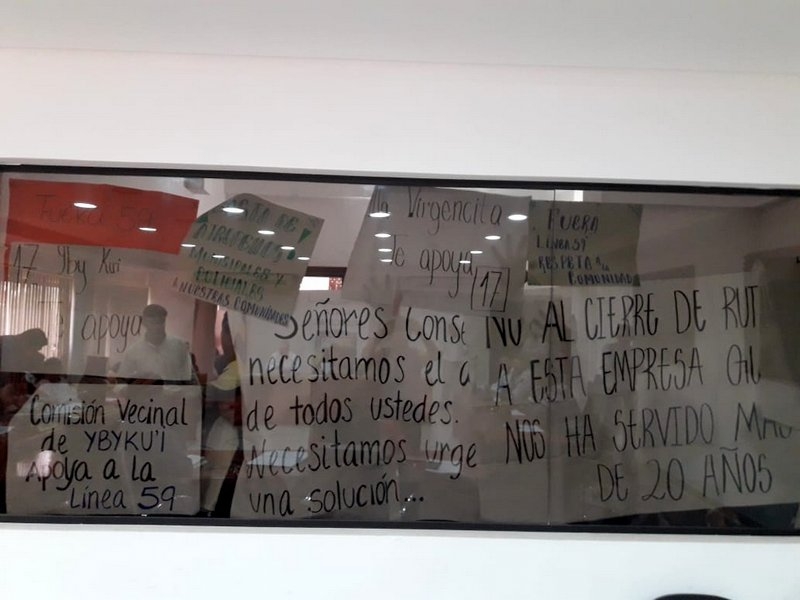 Fuera 59
17 Yby Kui
apoya
BASTA DE
MUNICIPALES Y
POLICIALES
A NUESTRAS COMUNIDADES
Virgencita
Te apoya 17
FUERA
LINEA 59
RESPETA
COMUNIDAD
Señores Conse
necesitamos el a
de todos ustedes.
Necesitamos urge
una solución...
NO AL CIERRE DE RUT
A ESTA EMPRESA QU
NOS HA SERVIDO MAS
DE 20 AÑOS
Comisión Vecinal
de YBYKU'I
Apoya a la
Línea 59